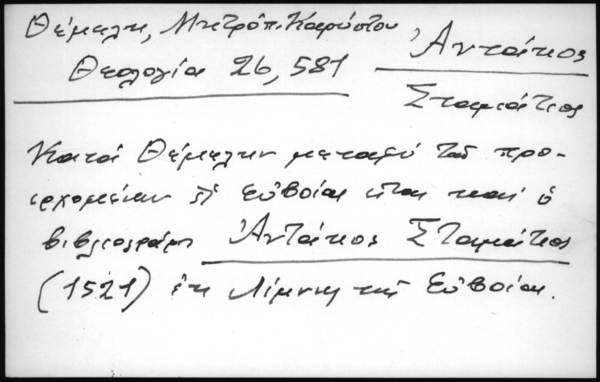 Θέμελη, Μητρόπ. Καρύστου
Θεολογία 26, 581
Ἀντάκος
Σταμάτιος
Κατά Θέμελην μεταξύ τῶν προ-
ερχομένων ἐξ Εὐβοίας εἶναι καί ὁ
βιβλιογράφος Ἀντάκος Σταμάτιος
(1521) ἐκ Λίμνης τῆς Εὐβοίας.